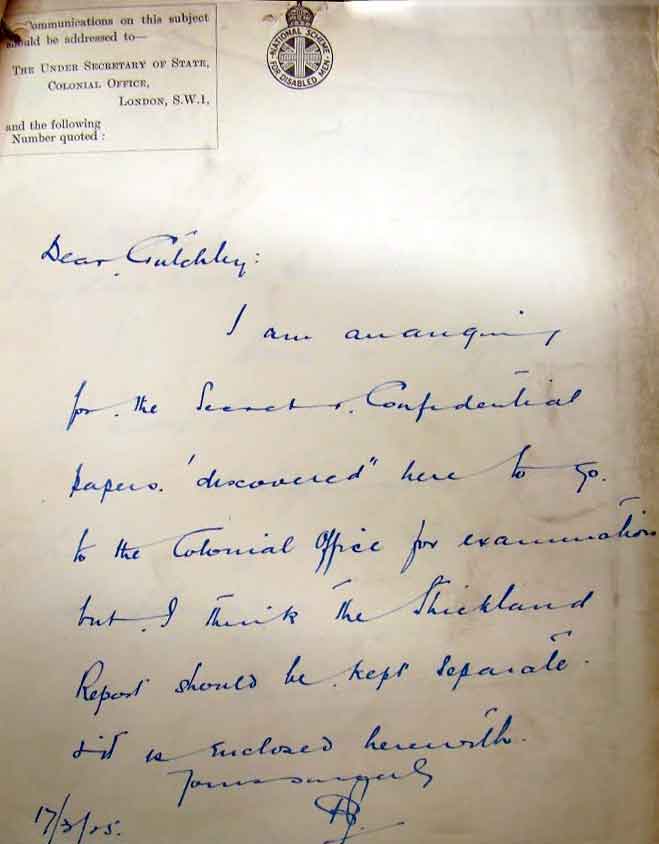 Communications on this subject
should be addressed to—
THE UNDER SECRETARY OF STATE,
COLONIAL OFFICE,
LONDON, S.W.1,
and the following
Number quoted :
NATIONAL SCHEME
FOR DISABLED MEN
Dear
I am arranging
for the Secret & Confidential
papers "discovered" here to go
to the Colonial Office for examination
but I think the Strickland
Report should be kept separate
& it is enclosed herewith.
Yours sincerely
17/3/25.